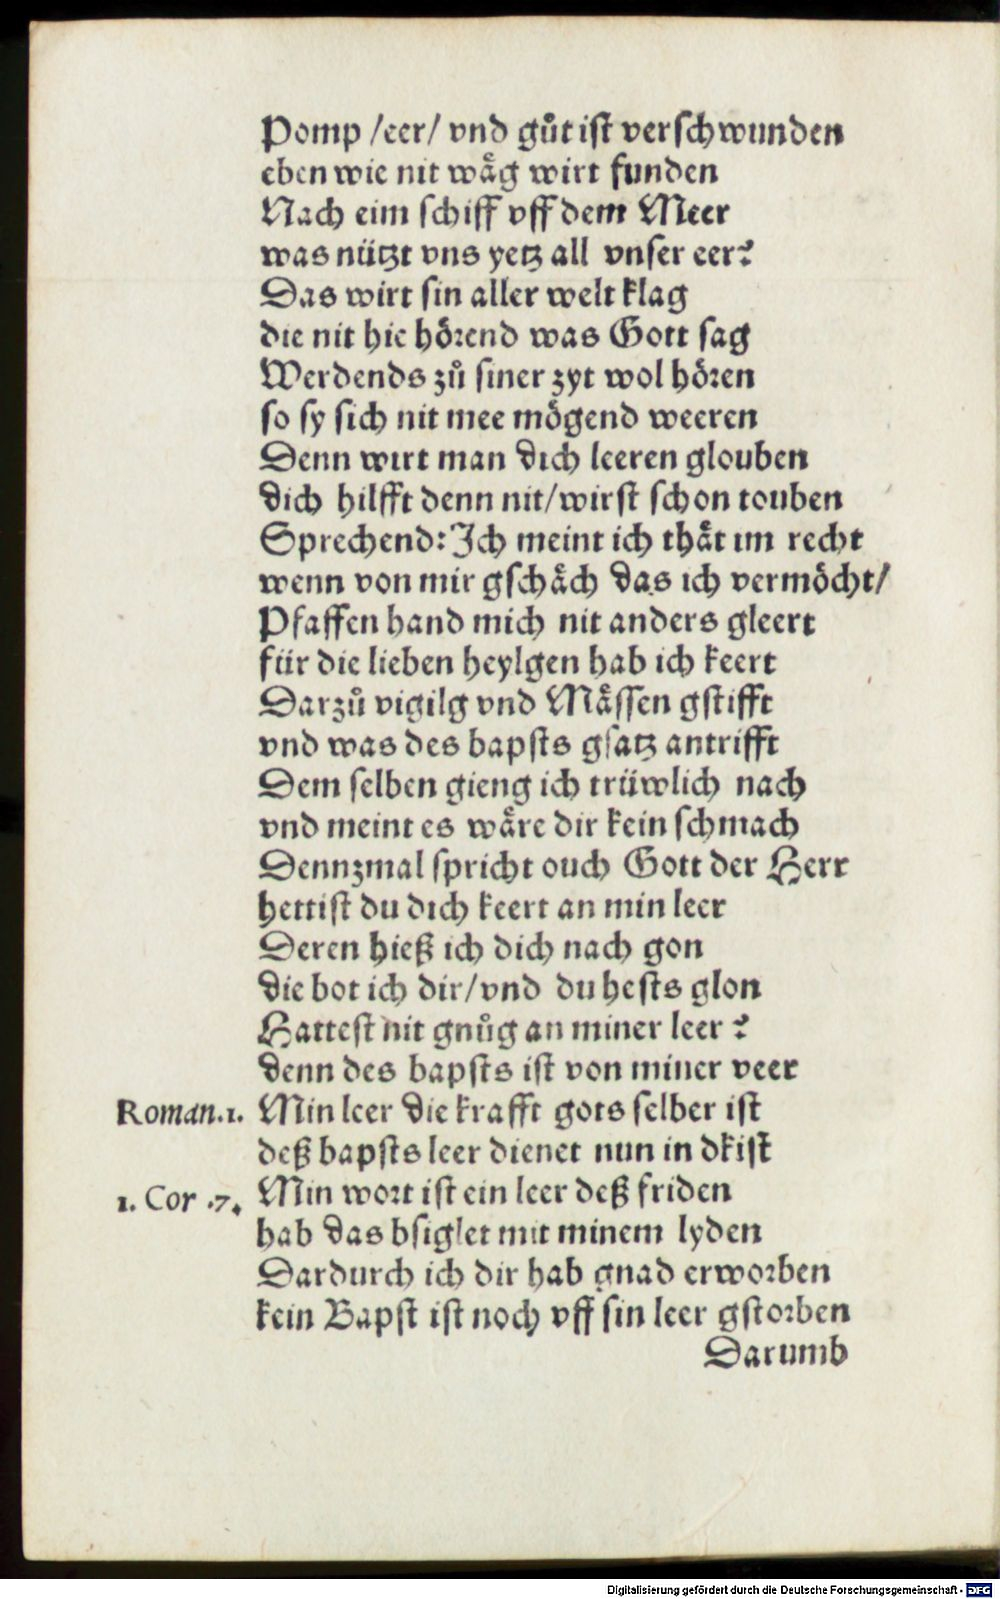 Pomp /eer/ vnd guͦt ist verschwunden
eben wie nit waͤg wirt funden
Nach eim schiff vff dem Meer
was nützt vns yetz all vnser eer?
Das wirt sin aller welt klag
die nit hie hoͤrend was Gott sag
Werdends zuͦ siner zyt wol hoͤren
so sy sich nit mee moͤgend weeren
Denn wirt man dich leeren glouben
dich hilfft denn nit/wirst schon touben
Sprechend: Ich meint ich thaͤt im recht
wenn von mir gschaͤch das ich vermoͤcht/
Pfaffen hand mich nit anders gleert
für die lieben heylgen hab ich keert
Darzuͦ vigilg vnd Maͤssen gstifft
vnd was des bapsts gsatz antrifft
Dem selben gieng ich trüwlich nach
vnd meint es waͤre dir kein schmach
Dennzmal spricht ouch Gott der Herr
hettist du dich keert an min leer
Deren hieß ich dich nach gon
die bot ich dir/vnd du hests glon
Hattest nit gnuͦg an miner leer?
denn des bapsts ist von miner veer
Roman.1. Min leer die krafft gots selber ist
deß bapsts leer dienet nun in dkist
1. Cor .7. Min wort ist ein leer deß friden
hab das bsiglet mit minem lyden
Dardurch ich dir hab gnad erworben
kein Bapst ist noch vff sin leer gstorben
Darumb
Digitalisierung gefördert durch die Deutsche Forschungsgemeinschaft - DFG